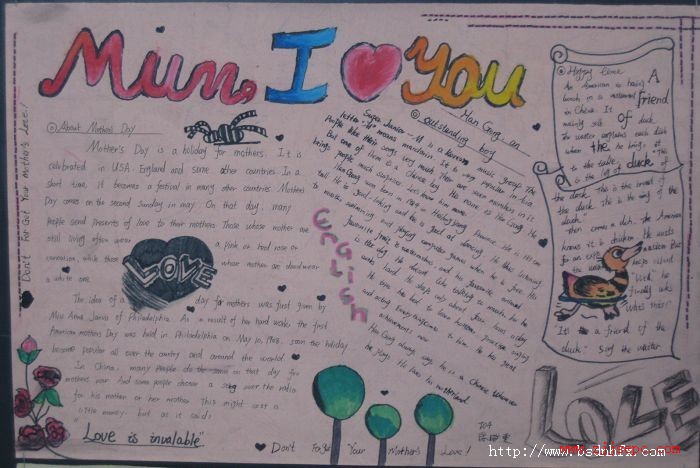 Mum, I You
Don't For Got Your Mother's Love!
About Mother's Day
Mother's Day is a holiday for mothers. It is
celebrated in USA. England and some other countries. In a
short time, it becomes a festival in many other countries. Mothers
Day comes on the second Sunday in may. On that day, many
people send presents of love to their mothers. Those whose mother are
still living often wear a pink or red rose or
carnation, while those whose mother are dead wear
a white one.
LOVE
The idea of a day for mothers was first given by
Miss Anna Jarvis of Philadelphia. As a result of her hard the first
American mother's Day was held in Philadelphia on May 10, 1908. soon the holiday
become popular all over the country and around the world.
In China, many people do on that day for
mothers. And some people choose a song over the radio
for his mother or her mother. This might cost a
little money. but as it said:
"Love is invalable"
Han Geng an
outstanding boy
Super Junior--M is a music group. The
letter "M" means mandarin. It is very popular in Asia.
People like their songs very much. There are seven members in it.
But one of them is a Chinese boy. His name is Han Geng. He
brings people much surprise. Let's know him more.
Han Geng was born in 1984 in Heilongjiang Province. He is 181 cm
tall. He is good-looking and he is good at dancing. He likes listening
to music, swimming and playing computer games when he is free. His
favourite fruit is and his favourite animal
is the dog. He doesn't like talking so much, but he
works hard. He sleeps only about four hours a day.
He uses his time to learn Korean, practise singing
and acting. Every
achievements now.
Han Geng always says he is a Chinese wherever
he goes. He loves his motherland.
English
Happy time
An American is having
lunch in a restaurant
in China. It
A
friend
of duck
The waiter explains each dish
when the he brings it
to the table. "This
is the leg of duck
the duck. This is the breast of
the duck. She is the wing of the
duck."
then comes a dish. The American
knows it is chicken. He waits
for an
the
"Well," he
finally asks
"What's this?"
"It is a friend of the
duck," say the waiter.
LOVE
Don't Forget Your Mother's Love!
704
http://www.bsdnhfx.com